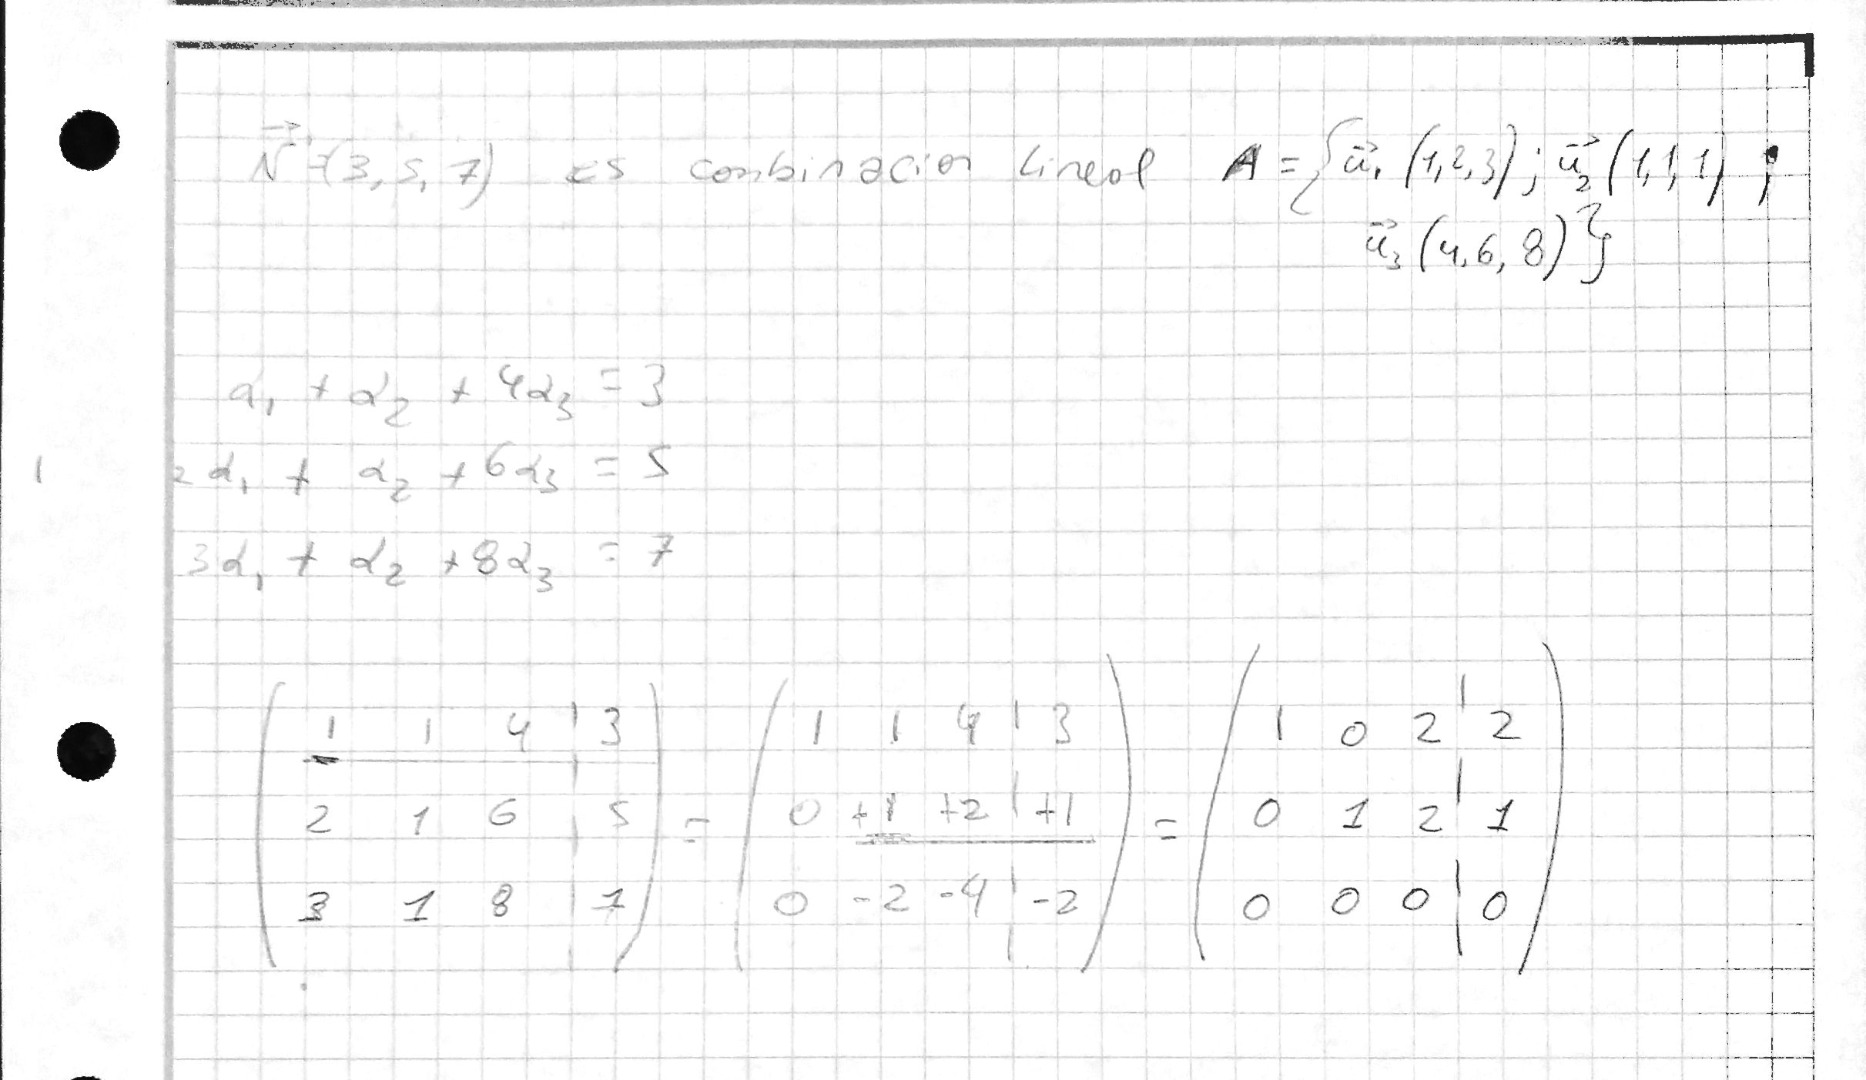 N⃗=(3,5,7) es combinacion lineal A={u⃗₁(1,2,3); u⃗₂(1,1,1);
u⃗₃(4,6,8)}
α₁ + α₂ + 4α₃ = 3
2α₁ + α₂ + 6α₃ = 5
3α₁ + α₂ + 8α₃ = 7
( 1 1 4 | 3 ) ( 1 1 4 | 3 ) ( 1 0 2 | 2 )
( 2 1 6 | 5 ) = ( 0 +1 +2 | +1 ) = ( 0 1 2 | 1 )
( 3 1 8 | 7 ) ( 0 -2 -4 | -2 ) ( 0 0 0 | 0 )